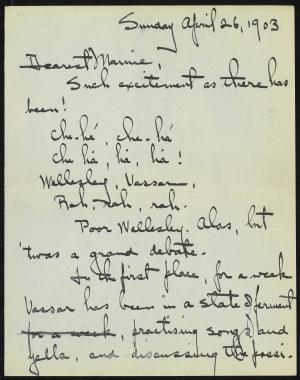 Sunday April 26, 1903
Dearest Mamie,
Such excitement as there has
been!
Che-hé, che-há
Che há, há, há!
Wellesley, Vassar,
Rah, rah, rah.
Poor Wellesley. Alas, but
'twas a grand debate.
In the first place, for a week
Vassar has been in a state of ferment
for a week, practising songs and
yells, and discussing the possi-